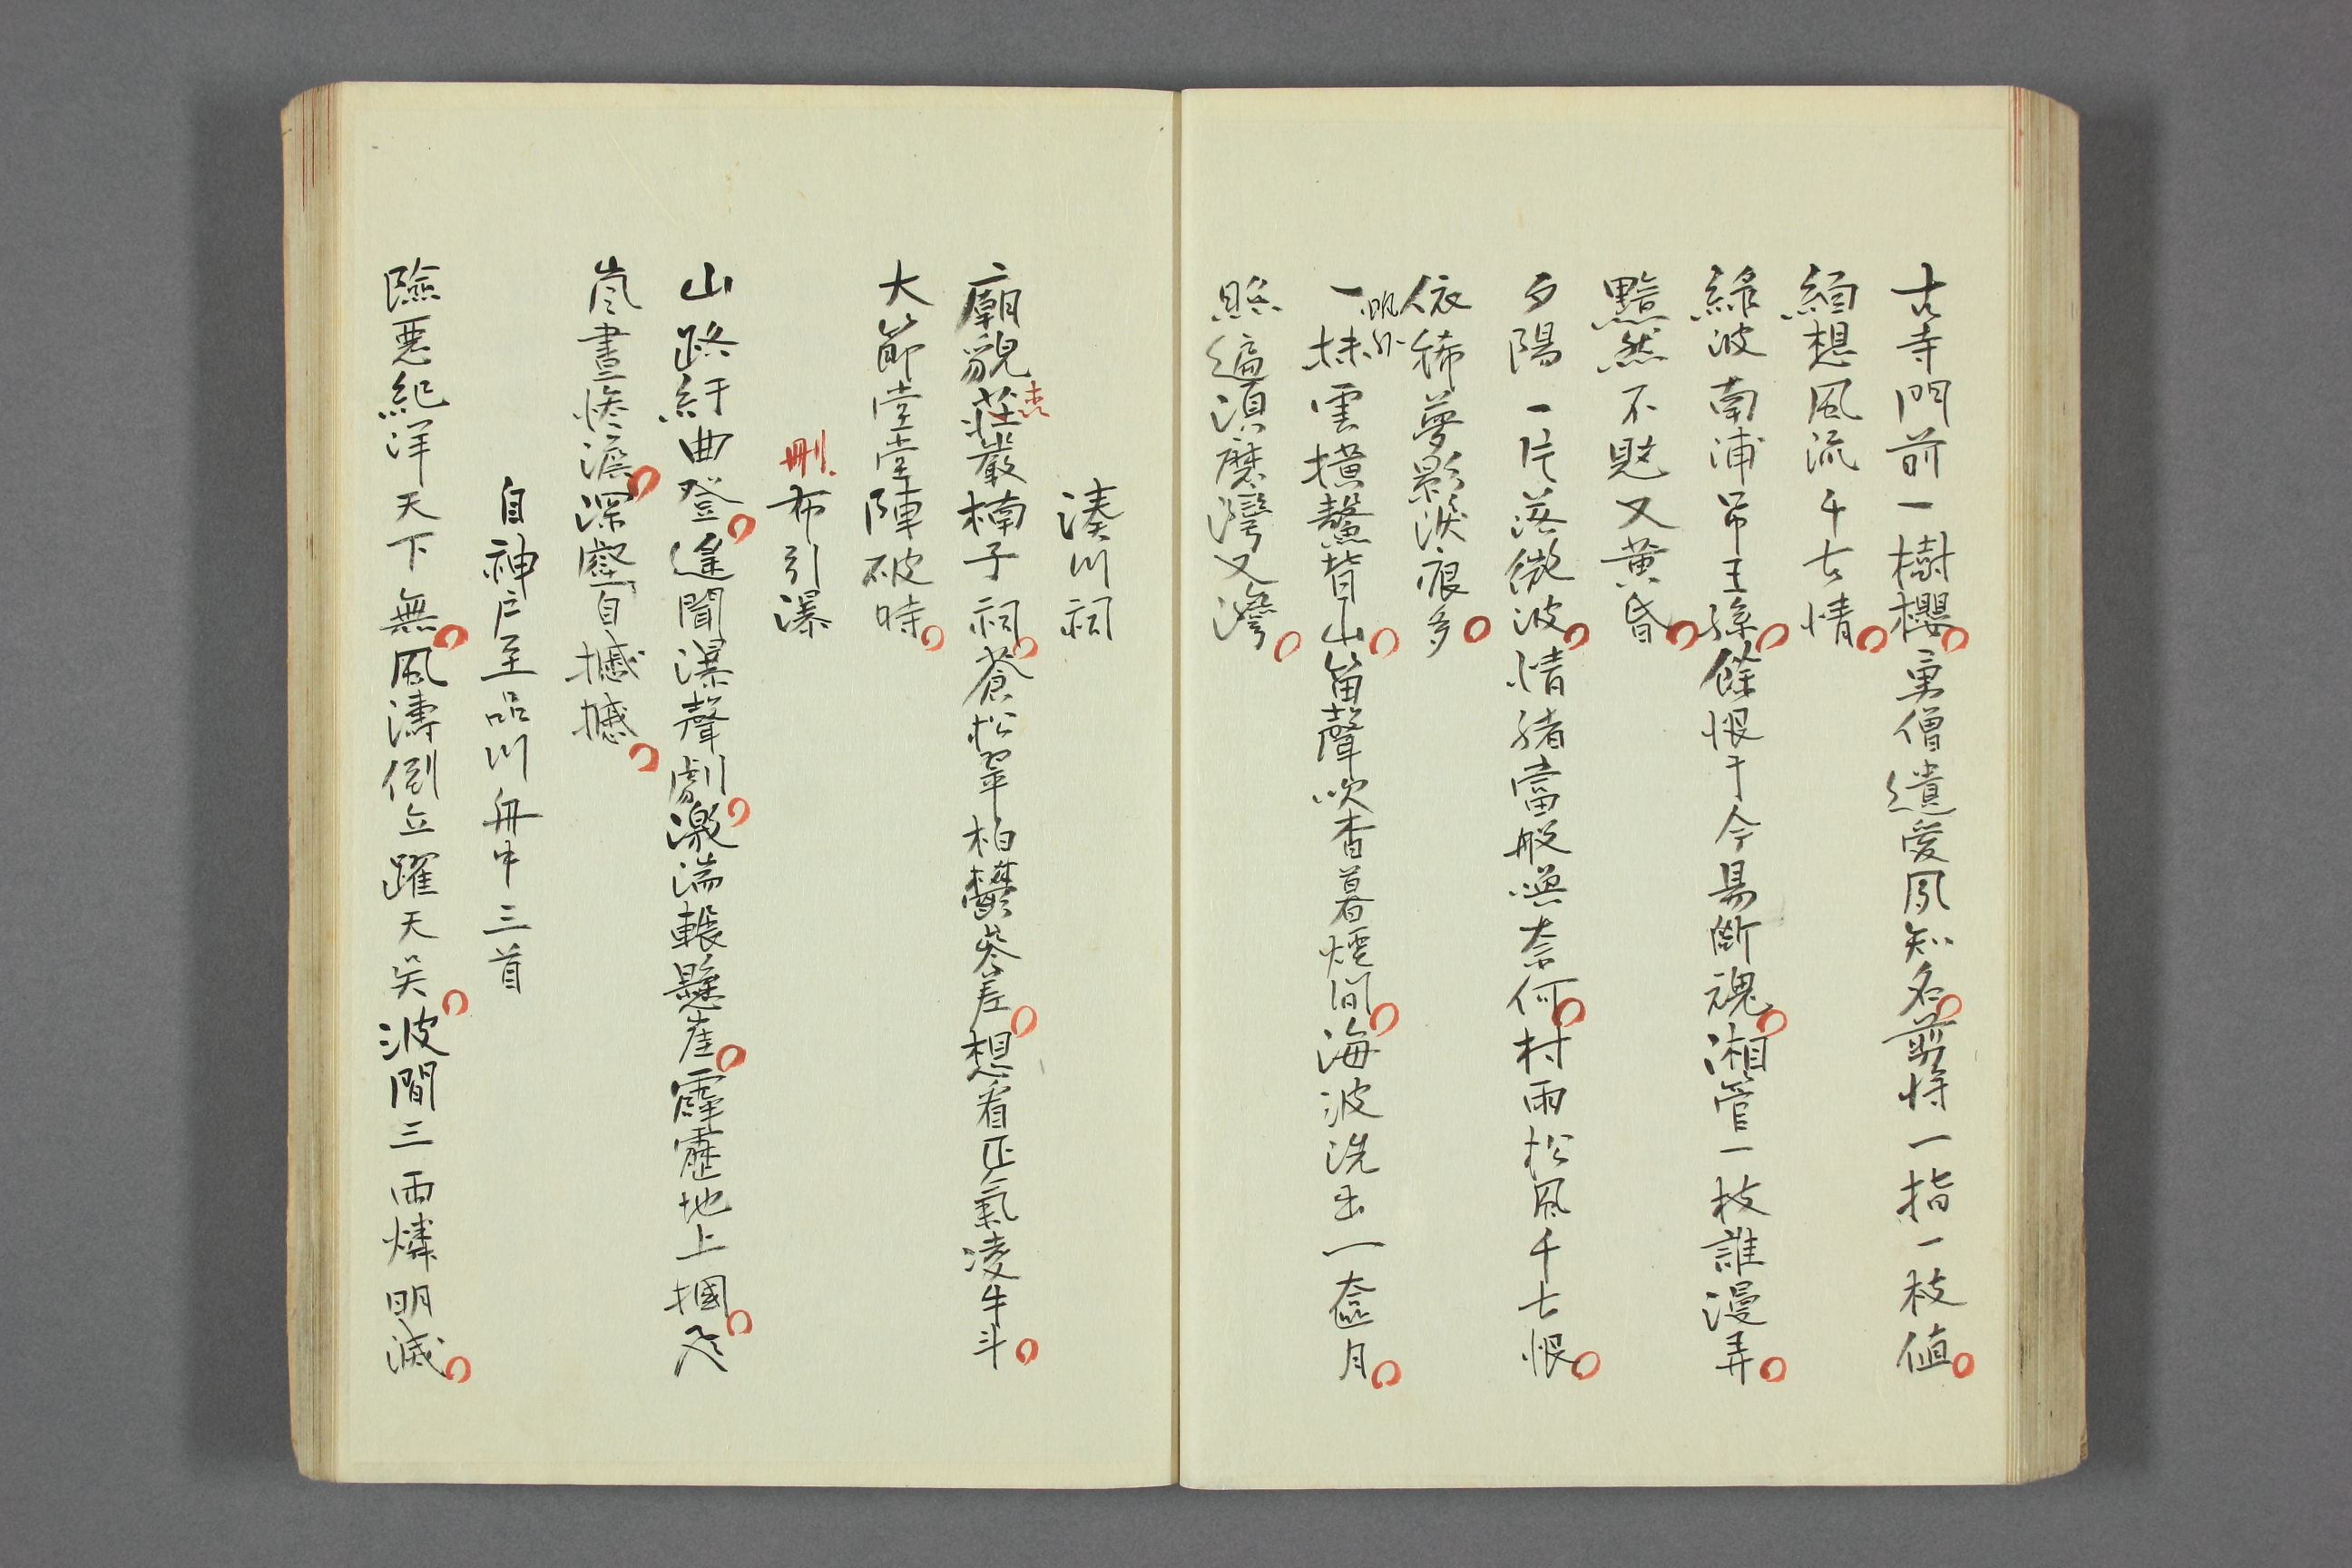 古寺門前一樹櫻勇僧遺愛夙知名剪將一指一枝値
緬想風流千古情
綠波南浦吊王孫餘恨于今易斷魂湘管一枝誰漫弄
黯然不覺又黃昏
夕陽一片落微波情緒當般喚奈何村雨松風千古恨
依稀夢影淚痕多
帆外
一抹雲横鼇背山笛聲吹杳暮煙間海波洗出一奩月
照遍須磨灣又灣
湊川祠
廟貌莊嚴楠子祠蒼松翠柏鬱参差想看正氣凌牛斗
大節堂堂陣破時
刪
布引瀑
山路紆曲登遙聞瀑聲劇激湍轟懸崖霹靂地上摑飛
嵐晝慘澹深壑自撼撼
自神戶至品川舟中三首
險惡紀洋天下無風濤倒立躍天吳波間三兩燐明滅